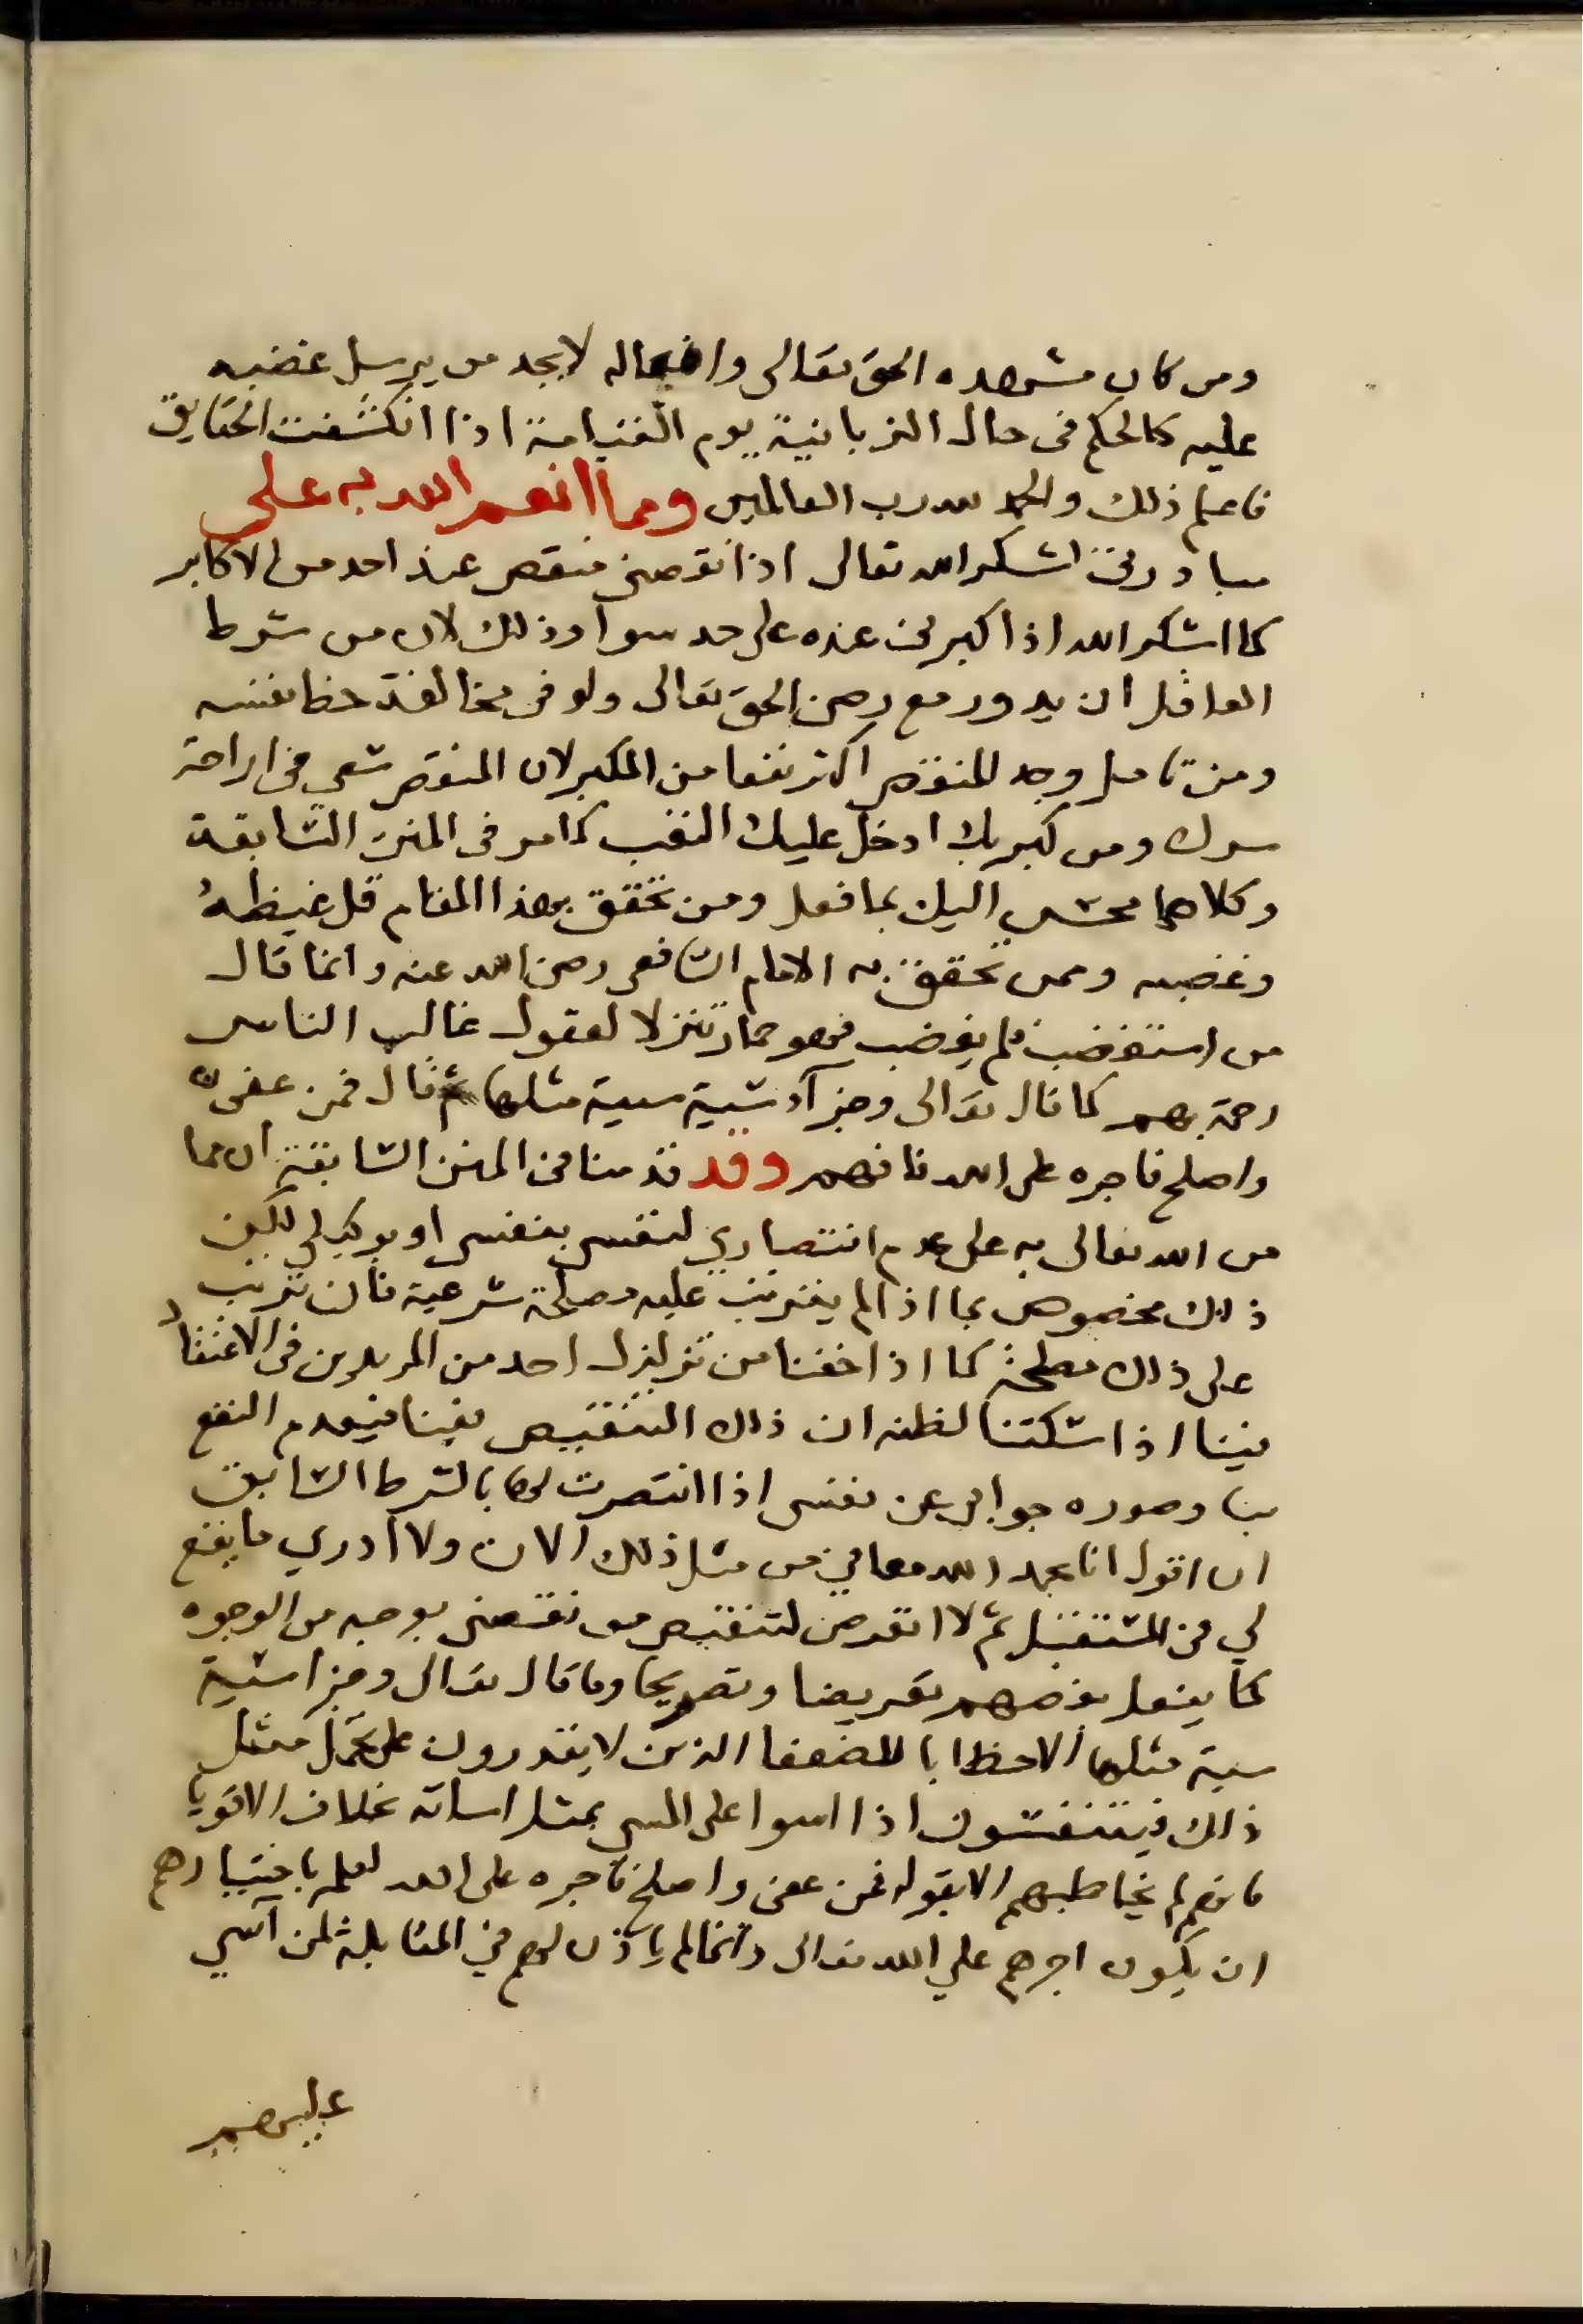 ومن كان مشهده الحق تعالى وافعاله لا يجد من يرسل غضبه
عليه كالحكم فى حال الزبانية يوم القيامة اذا انكشفت الحقايق
فاعلم ذلك والحمد لله رب العالمين ومما انعم الله به على
مبادرتى اشكر الله تعالى اذا نقصنى منقص عند احد من الاكابر
كما اشكر الله اذا كبرنى عنده على حد سوا وذلك لان من شرط
العاقل ان يدور مع رضى الحق تعالى ولو فى مخالفة حظ نفسه
ومن تامل وجد المنقص اكثر نفعا من المكبر لان المنقص سعى فى راحة
سرك ومن كبر بك ادخل عليك التعب كما مر فى المنن السابقة
وكلاهما محسن اليك بما فعل ومن تحقق بهذا المقام قل غيظه
وغضبه وممن تحقق به الامام الشافعى رضى الله عنه وانما قال
من استغضب فلم يغضب فهو حمار تنزلا لعقول غالب الناس
رحمة بهم كما قال تعالى وجزآء سيية سيية مثلها ثم قال فمن عفى
واصلح فاجره على الله فافهم وقد قدمنا فى المنن السابقة ان مما
من الله تعالى به على عدم انتصاري لنفسى بنفسى او بوكيلى لكن
ذلك مخصوص بما اذا لم يترتب عليه مصلحة شرعية فان ترتب
على ذلك مصلحة كما اذا خفنا من تزلزل احد من المريدين فى الاعتقاد
فينا اذا سكتنا لظنه ان ذلك التنقيص فينا فيعدم النفع
بنا وصورة جوابى عن نفسى اذا انتصرت لها بالشرط السابق
ان اقول انا بحمد الله معافى من مثل ذلك الان ولا أدري ما يقع
لي فى المستقبل ثم لا اتعرض لتنقيص من نقصنى بوجه من الوجوه
كما يفعل بعضهم تعريضا وتصريحا وما قال تعالى وجزا سيية
سيية مثلها الا حظا بالضعفا الذين لا يقدرون على تحمل مثل
ذلك فيتنفسون اذا اسوا على المسى بمثل اساته بخلاف الاقويا
فانهم لم يخاطبهم الا بقوله فمن عفى واصلح فاجره على الله لعلمه باختيارهم
ان يكون اجرهم علي الله تعالى وانما لم ياذن لهم في المقابلة لمن آسي
عليهم